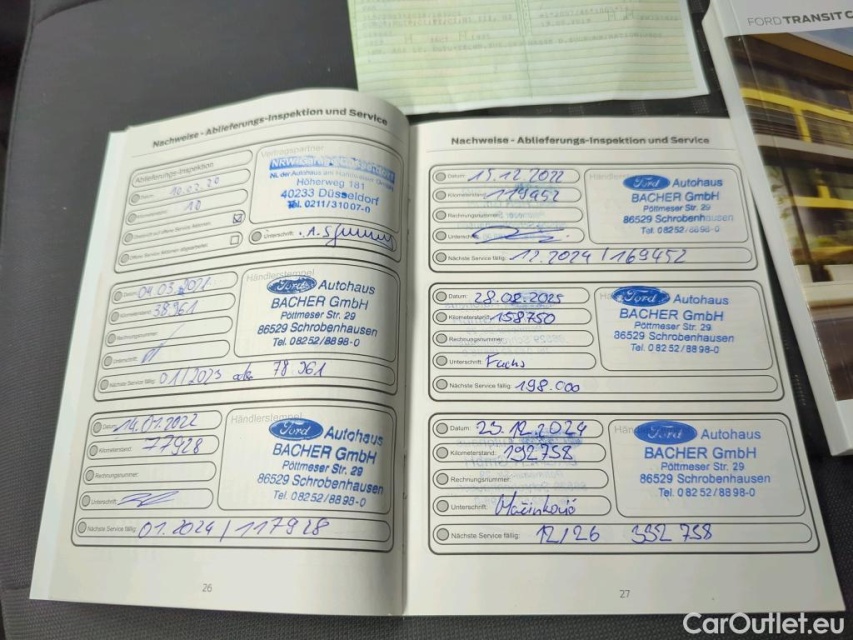 FORD TRANSIT C
Nachweise - Ablieferungs-Inspektion und Service
Ablieferungs-Inspektion
Vertragspartner
Höherweg 181
40233 Düsseldorf
Tel. 0211/31007-0
10
Unterschrift:
Datum: 04.03.2021
Kilometerstand: 38961
Rechnungsnummer:
Unterschrift:
Nächste Service fällig: 01/2023 78 961
Händlerstempel
Ford Autohaus
BACHER GmbH
Pöttmeser Str. 29
86529 Schrobenhausen
Tel. 08252/8898-0
Datum: 14.01.2022
Kilometerstand: 77928
Rechnungsnummer:
Unterschrift:
Nächste Service fällig: 01.2024 / 117928
Händlerstempel
Ford Autohaus
BACHER GmbH
Pöttmeser Str. 29
86529 Schrobenhausen
Tel. 08252/8898-0
26
Nachweise - Ablieferungs-Inspektion und Service
Datum: 15.12.2022
Kilometerstand: 119952
Rechnungsnummer:
Unterschrift:
Nächste Service fällig: 12.2024 / 169452
Ford Autohaus
BACHER GmbH
Pöttmeser Str. 29
86529 Schrobenhausen
Tel. 08252/8898-0
Datum: 28.02.2025
Kilometerstand: 158750
Rechnungsnummer:
Unterschrift: Fuchs
Nächste Service fällig: 198.000
Ford Autohaus
BACHER GmbH
Pöttmeser Str. 29
86529 Schrobenhausen
Tel. 08252/8898-0
Datum: 23.12.2024
Kilometerstand: 192758
Rechnungsnummer:
Unterschrift:
Nächste Service fällig: 12/26 332 758
Ford Autohaus
BACHER GmbH
Pöttmeser Str. 29
86529 Schrobenhausen
Tel. 08252/8898-0
27
CarOutlet.eu